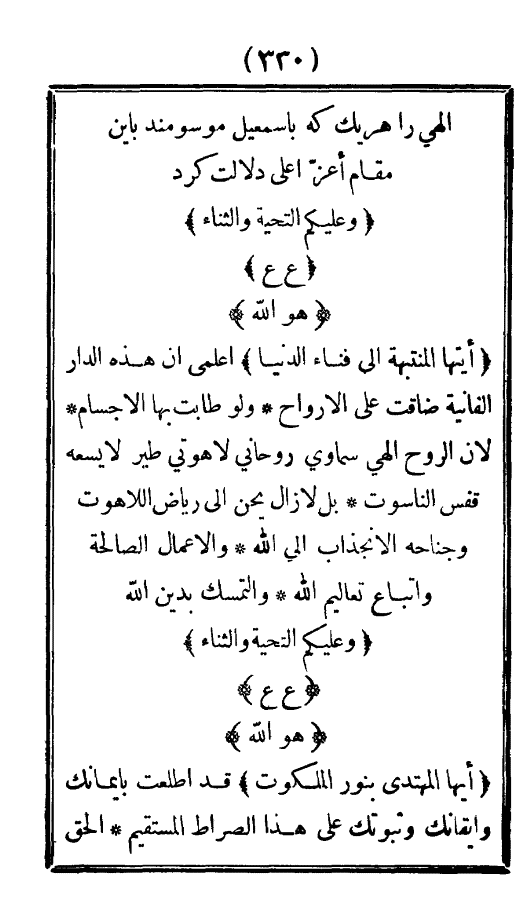 (٣٣٠)
الهي را هريك كه باسمعيل موسومند باين
مقام أعزّ اعلى دلالت كرد
﴿ وعليكم التحية والثناء ﴾
﴿ ع ع ﴾
﴿ هو الله ﴾
﴿ أيتها المنتبهة الى فناء الدنيا ﴾ اعلمى ان هذه الدار
الفانية ضاقت على الارواح * ولو طابت بها الاجسام *
لان الروح الهي سماوي روحاني لاهوتي طير لايسعه
قفس الناسوت * بل لازال يحن الى رياض اللاهوت
وجناحه الانجذاب الي الله * والاعمال الصالحة
واتباع تعاليم الله * والتمسك بدين الله
﴿ وعليكم التحية والثناء ﴾
﴿ ع ع ﴾
﴿ هو الله ﴾
﴿ أيها المهتدى بنور الملكوت ﴾ قد اطلعت بايمانك
وايقانك وثبوتك على هذا الصراط المستقيم * الحق